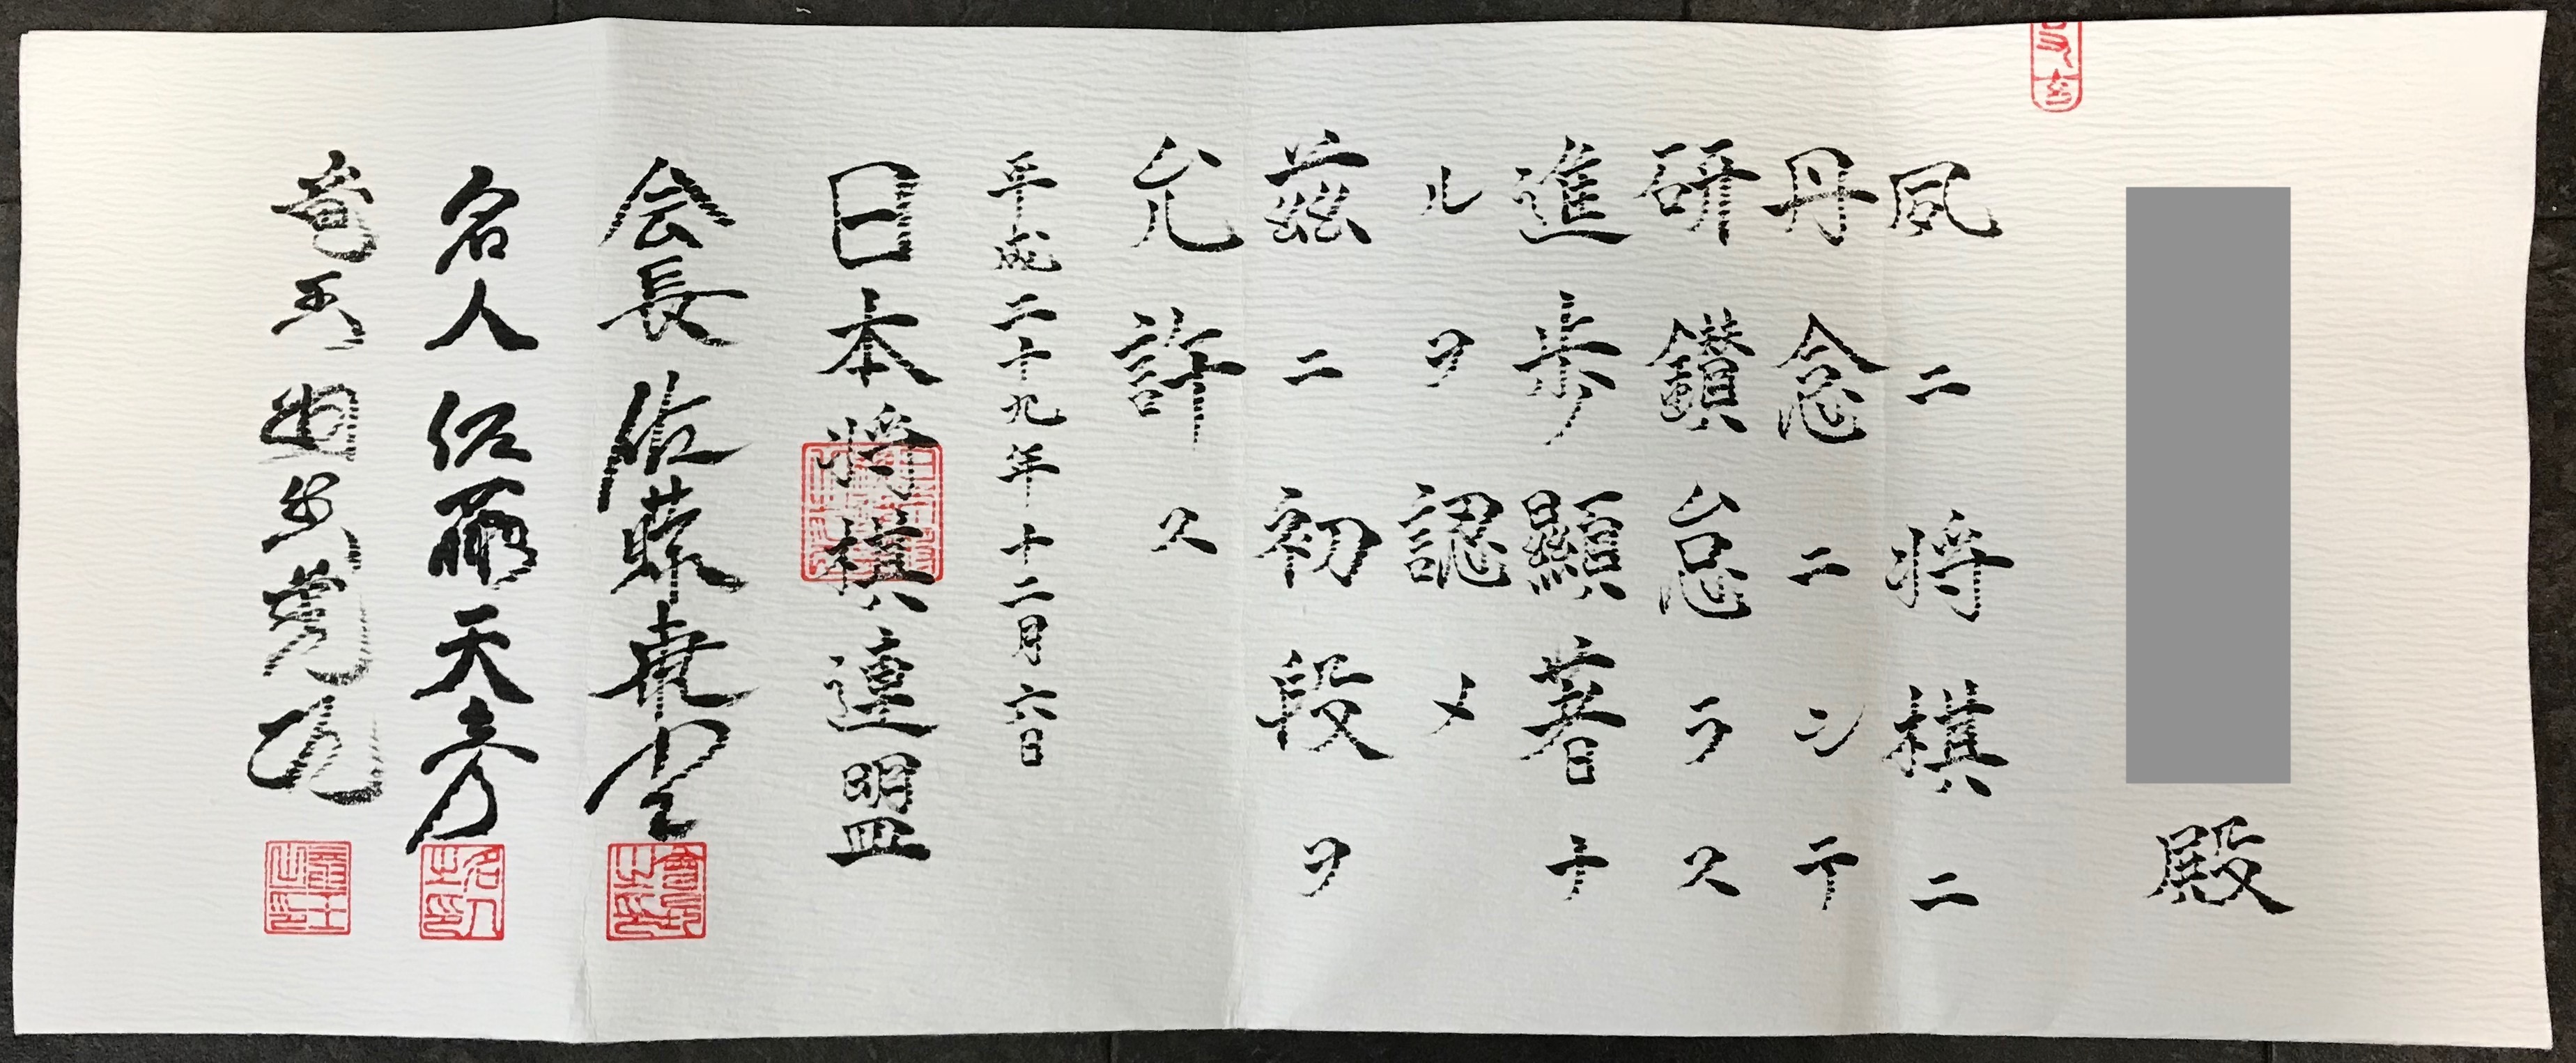 殿
夙ニ将棋ニ
丹念ニシテ
研鑽怠ラス
進歩顯著ナ
ルヲ認メ
茲ニ初段ヲ
允許ス
平成二十九年十二月六日
日本将棋連盟
会長 佐藤康光
名人 佐藤天彦
竜王 渡辺明